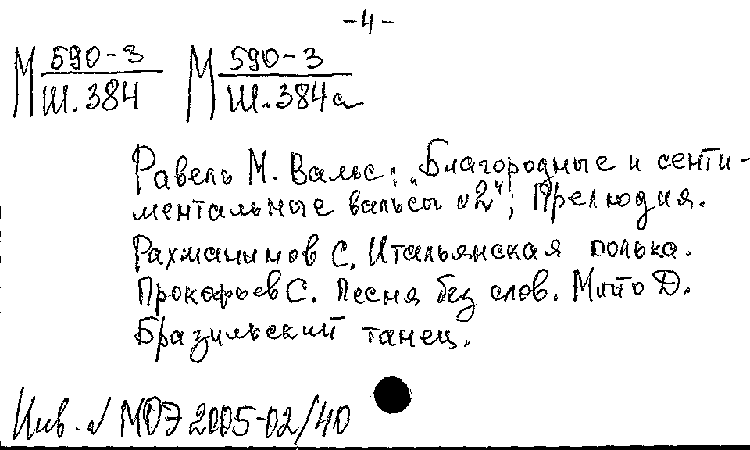 -4-
М 590-3 М 590-3
Ш.384 Ш.384а
Равель М. Вальс; "Благородные и сенти-
ментальные вальсы №2"; Прелюдия.
Рахманинов С. Итальянская полька.
Прокофьев С. Песня без слов. Мийо Д.
Бразильский танец.
Инв. № МОЭ 2005-02/40